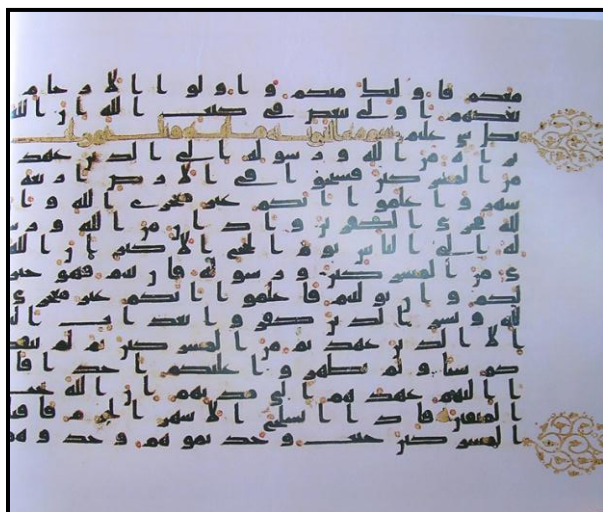 معكم فاولئك منكم واولوا الارحام
بعضهم اولى ببعض فى كتب الله ان الله
بكل شى عليم سورة التوبة مائة
براة من الله ورسوله الى الذين عهد
من المشركين فسيحوا فى الارض اربعة
شهر واعلموا انكم غير معجزى الله وا
لله مخزى الكفرين واذان من الله ورسو
له الى الناس يوم الحج الاكبر ان الله
ى من المشركين ورسوله فان تبتم فهو خير
لكم وان توليتم فاعلموا انكم غير معجزى
لله وبشر الذين كفروا بعذاب ال
الا الذين عهدتم من المشركين ثم لم ينقصو
كم شيا ولم يظهروا عليكم احدا فا
ا اليهم عهدهم الى مدتهم ان الله يحب
المتقين فاذا انسلخ الاشهر الحرم فاقتلو
المشركين حيث وجدتموهم وخذوهم